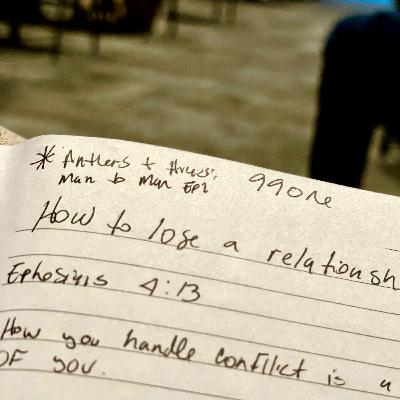 * Antlers &
Man to Man EP1
99one
How to lose a relationsh
Ephesians 4:13
How you handle conflict is a
OF you.